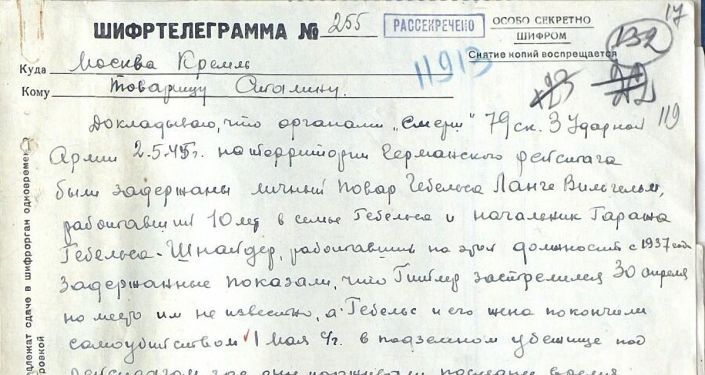 17
ШИФРТЕЛЕГРАММА № 255
РАССЕКРЕЧЕНО
ОСОБО СЕКРЕТНО
ШИФРОМ
Снятие копий воспрещается
132
Куда Москва Кремль
11913
Кому Товарищу Сталину.
119
Докладываю, что органами „Смерш" 79 ск. 3 Ударной
Армии 2.5.45г. на территории Германского рейхстага
были задержаны личный повар Гебельса Ланге Вильгельм,
работавший 10 лет в семье Гебельса и начальник Гаража
Гебельса - Шнайдер, работавший на этой должности с 1937 года
Задержанные показали, что Гитлер застрелился 30 апреля
но место им не известно, а Гебельс и его жена покончили
самоубийством 1 мая с/г. в подземном убежище под
рейхстагом где они последнее время
длежат сдаче в шифрорган одновремен